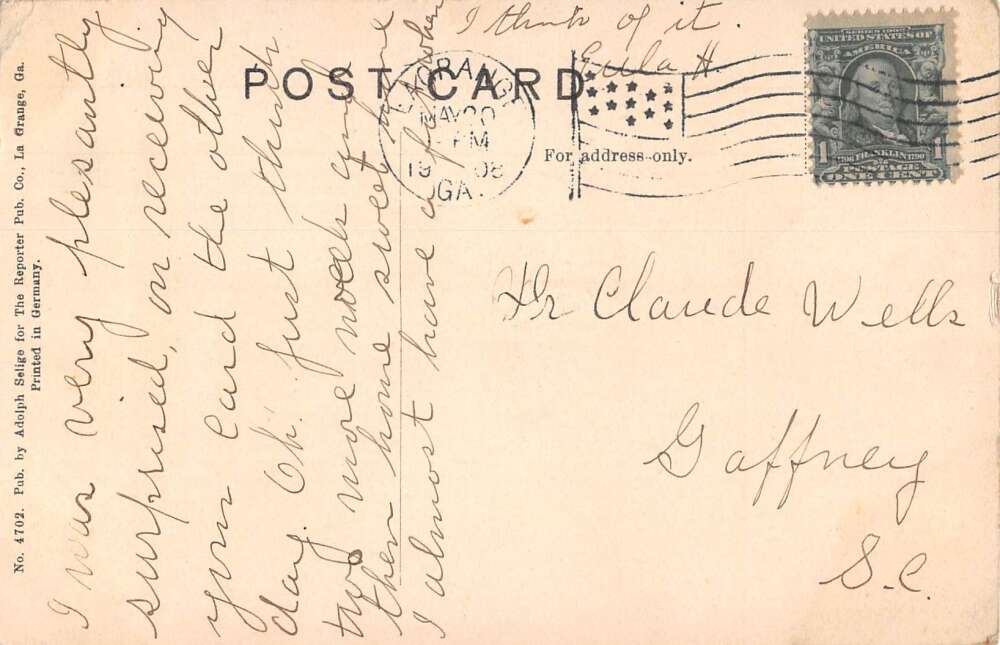 No. 4702. Pub. by Adolph Selige for The Reporter Pub. Co., La Grange, Ga.
Printed in Germany.
POST CARD
For address only.
LAGRANGE
MAY 20
PM
1908
GA.
SERIES 1902
UNITED STATES OF
AMERICA
1 1706 FRANKLIN 1790 1
POSTAGE
ONE CENT
I was very plesantly
surprised, on receiving
your card the other
day. Oh! just think
two more weeks and
then home sweet home
I almost have a fit when
I think of it.
Eula H.
Claude Wells
Gaffney
S.C.